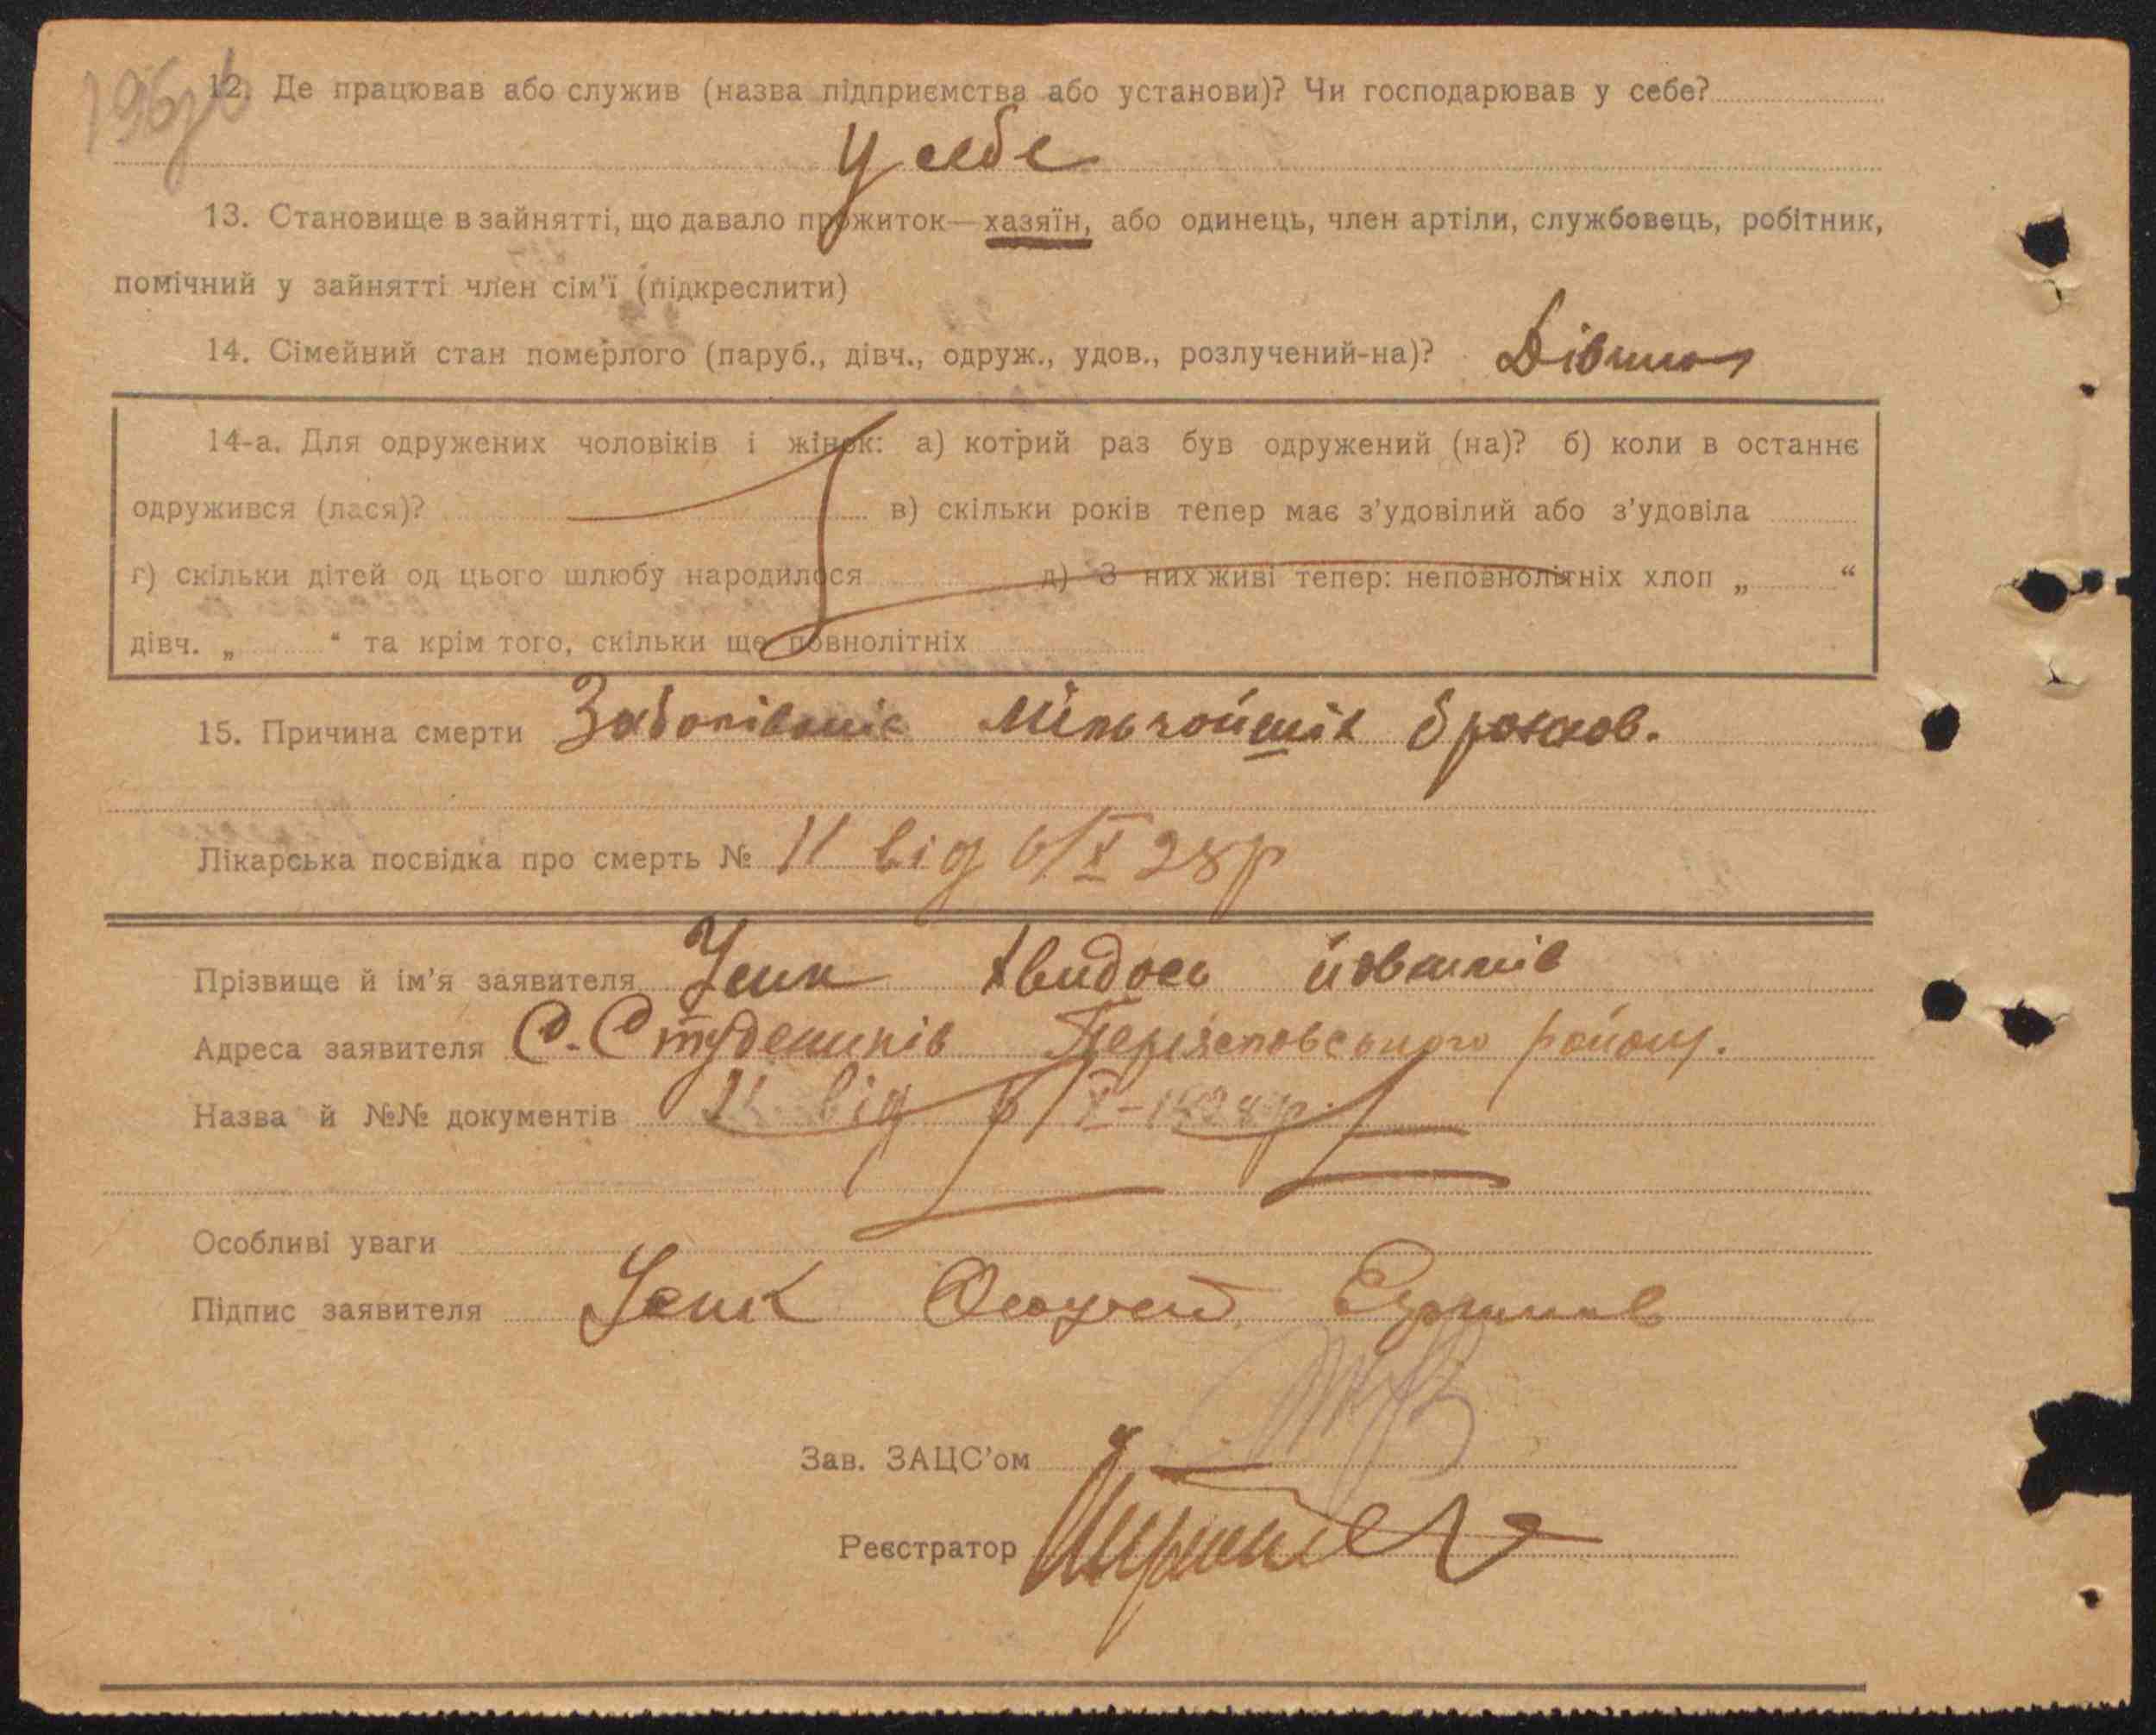 12. Де працював або служив (назва підприємства або установи)? Чи господарював у себе?
У себе
13. Становище в зайнятті, що давало прожиток—хазяїн, або одинець, член артіли, службовець, робітник,
помічний у зайнятті член сім'ї (підкреслити)
14. Сімейний стан померлого (паруб., дівч., одруж., удов., розлучений-на)? Дівчина
14-а. Для одружених чоловіків і жінок: а) котрий раз був одружений (на)? б) коли в останнє
одружився (лася)? в) скільки років тепер має з'удовілий або з'удовіла
г) скільки дітей од цього шлюбу народилося д) З них живі тепер: неповнолітніх хлоп „ “
дівч. „ “ та крім того, скільки ще повнолітніх
15. Причина смерти
Лікарська посвідка про смерть № 11 від 6/X 28р
Прізвище й ім'я заявителя Усик
Адреса заявителя С. Студеників району.
Назва й №№ документів 11 від 6/X-1928р.
Особливі уваги
Підпис заявителя Усик
Зав. ЗАЦС'ом
Реєстратор